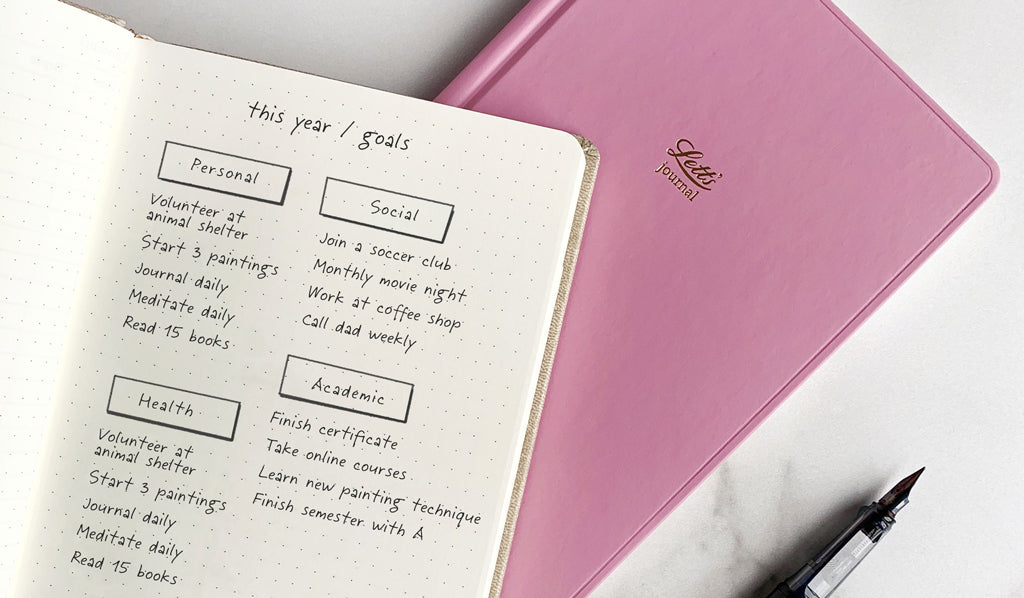 this year / goals
Personal
Volunteer at
animal shelter
Start 3 paintings
Journal daily
Meditate daily
Read 15 books
Social
Join a soccer club
Monthly movie night
Work at coffee shop
Call dad weekly
Health
Volunteer at
animal shelter
Start 3 paintings
Journal daily
Meditate daily
Read 15 books
Academic
Finish certificate
Take online courses
Learn new painting technique
Finish semester with A
Letts'
journal